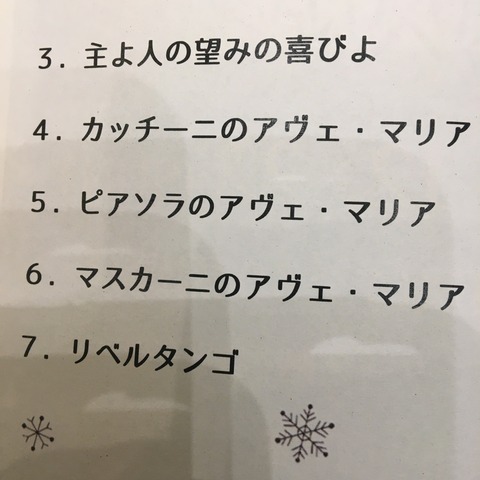 3. 主よ人の望みの喜びよ
4. カッチーニのアヴェ・マリア
5. ピアソラのアヴェ・マリア
6. マスカーニのアヴェ・マリア
7. リベルタンゴ